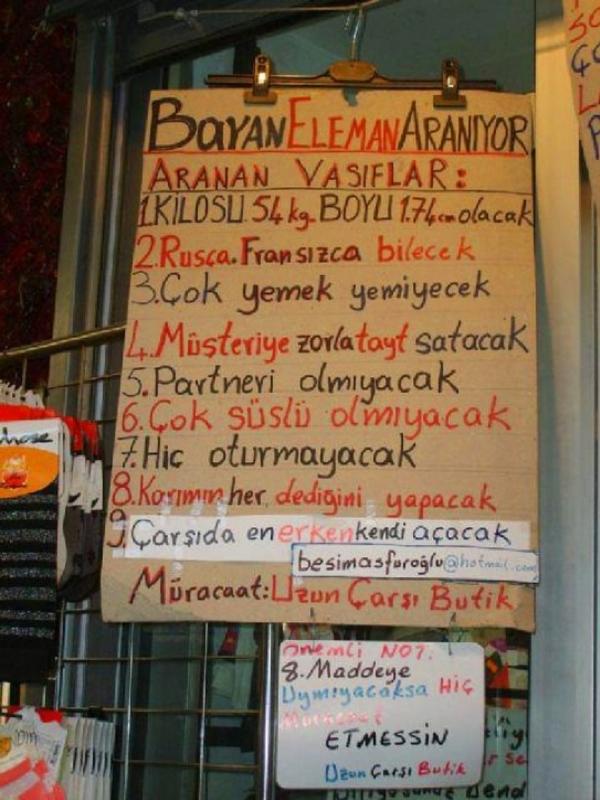 BAYAN ELEMAN ARANIYOR
ARANAN VASIFLAR:
1.KİLOSU 54 kg. BOYU 1.74cm olacak
2.Rusça.Fransızca bilecek
3.Çok yemek yemiyecek
4.Müşteriye zorla tayt satacak
5.Partneri olmıyacak
6.Çok süslü olmıyacak
7.Hiç oturmayacak
8.Karımın her dediğini yapacak
9.Çarşıda en erken kendi açacak
besimasfuroğlu@hotmail.com
Müracaat:Uzun Çarşı Butik
Önemli NOT:
8.Maddeye
Uymıyacaksa HİÇ
Müracaat
ETMESSİN
Uzun Çarşı Butik